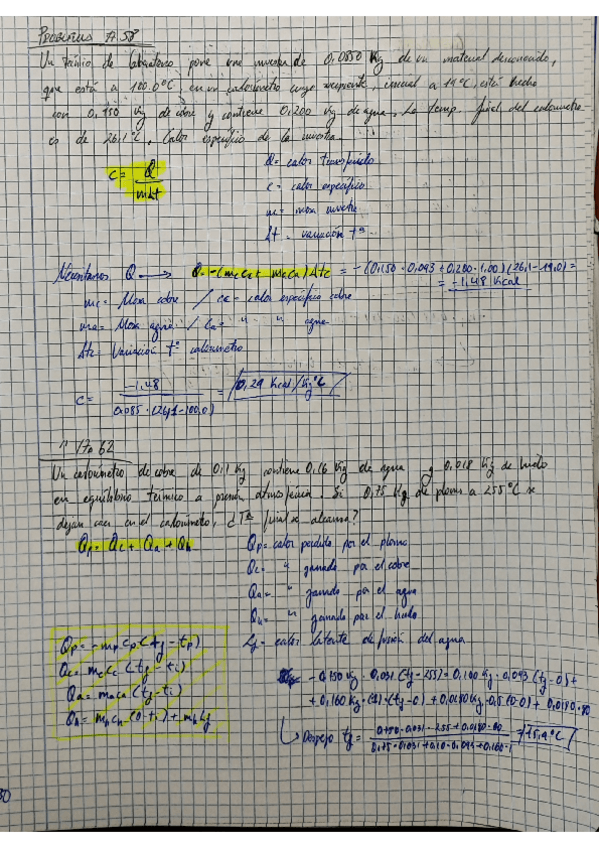 Problemas 17.58
Un técnico de laboratorio pone una muestra de 0,0850 Kg de un material desconocido,
que está a 100.0°C, en un calorímetro cuyo recipiente, inicial a 19°C, está hecho
con 0,150 Kg de cobre y contiene 0,200 Kg de agua. La temp. final del calorímetro
es de 26,1°C. Calor específico de la muestra.
c = Q / m Δt
Q = calor transferido
c = calor específico
m = masa muestra
Δt = variación tª
Necesitamos Q → Q = -(mc cc + ma ca) Δtc = -(0,150 · 0,093 + 0,200 · 1,00)(26,1 - 19,0) =
= -1,48 Kcal
mc = Masa cobre / cc = calor específico cobre
ma = Masa agua / ca = " " agua
Δtc Variación tª calorímetro
c = -1,48 / 0,085 · (26,1 - 100,0) = 0,24 Kcal/Kg°C
" 17.62
Un calorímetro de cobre de 0,1 Kg contiene 0,16 Kg de agua y 0,018 Kg de hielo
en equilibrio térmico a presión atmosférica. Si 0,75 Kg de plomo a 255°C se
dejan caer en el calorímetro, ¿Tª final se alcanza?
Qp = Qc + Qa + Qh
Qp = calor perdido por el plomo
Qc = " ganado por el cobre
Qa = " ganado por el agua
Qh = " ganado por el hielo
Lf = calor latente de fusión del agua
Qp = -mp cp (tf - tp)
Qc = mc cc (tf - ti)
Qa = ma ca (tf - ti)
Qh = mp ch (0 - ti) + mh Lf
- 0,750 Kg · 0,031 (tf - 255) = 0,100 Kg · 0,093 (tf - 0) +
+ 0,160 Kg · (1) · (tf - 0) + 0,0180 Kg · 0,5 (0 - 0) + 0,0180 · 80
Despejo tf = 0,750 · 0,031 - 255 + 0,0180 · 80 / 0,75 · 0,031 + 0,10 · 0,093 + 0,160 · 1 = 15,4°C